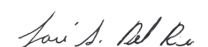 Lori S. Del Rio